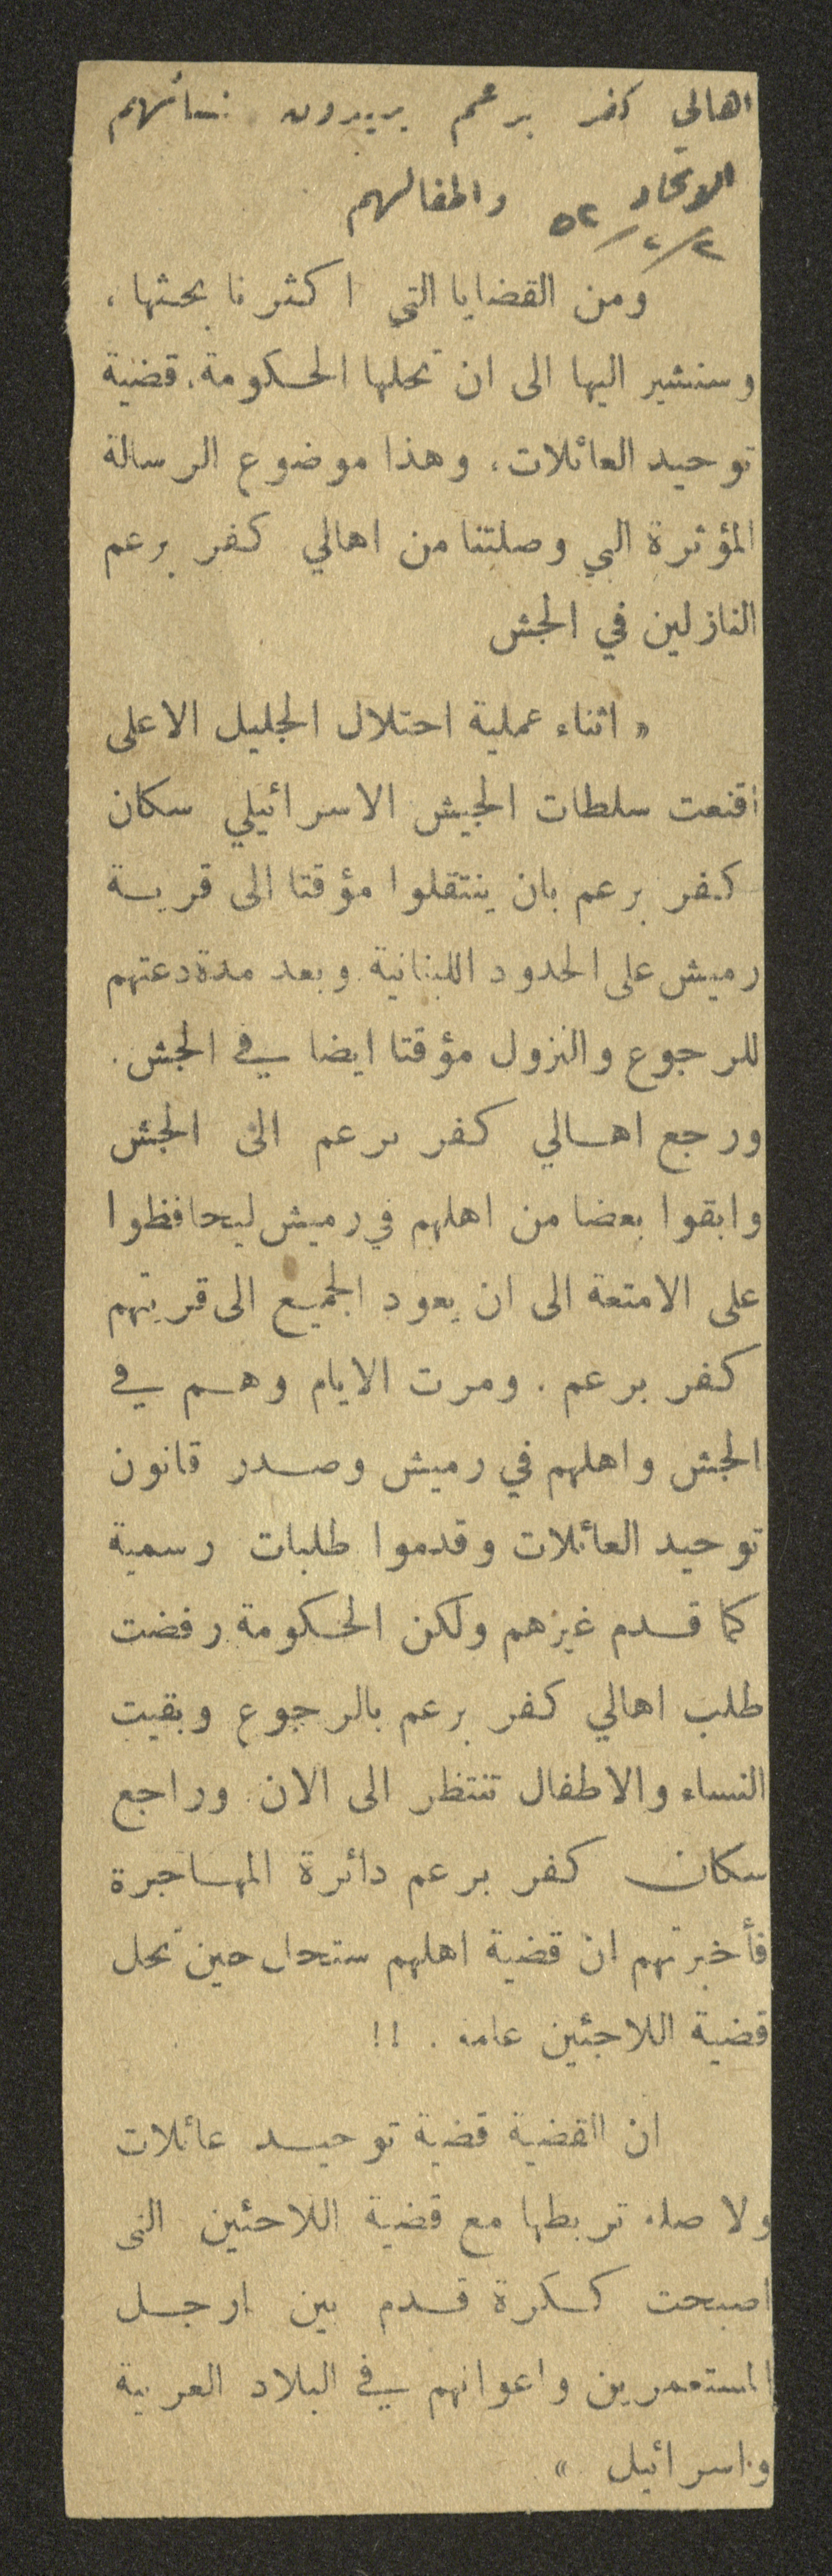 اهالي كفر برعم يريدون نسائهم
واطفالهم
الاتحاد
٥٢/٢/٢
ومن القضايا التي اكثرنا بحثها ،
وسنشير اليها الى ان تحلها الحكومة، قضية
توحيد العائلات، وهذا موضوع الرسالة
المؤثرة التي وصلتنا من اهالي كفر برعم
النازلين في الجش
« اثناء عملية احتلال الجليل الاعلى
اقنعت سلطات الجيش الاسرائيلي سكان
كفر برعم بان ينتقلوا مؤقتا الى قرية
رميش على الحدود اللبنانية وبعد مدة دعتهم
للرجوع والنزول مؤقتا ايضا في الجش .
ورجع اهالي كفر برعم الى الجش
وابقوا بعضا من اهلهم في رميش ليحافظوا
على الامتعة الى ان يعود الجميع الى قريتهم
كفر برعم . ومرت الايام وهم في
الجش واهلهم في رميش وصدر قانون
توحيد العائلات وقدموا طلبات رسمية
كما قدم غيرهم ولكن الحكومة رفضت
طلب اهالي كفر برعم بالرجوع وبقيت
النساء والاطفال تنتظر الى الان وراجع
سكان كفر برعم دائرة المهاجرة
فأخبرتهم ان قضية اهلهم ستحل حين تحل
قضية اللاجئين عامه . !!
ان القضية قضية توحيد عائلات
ولا صله تربطها مع قضية اللاجئين التي
اصبحت ككرة قدم بين ارجل
المستعمرين واعوانهم في البلاد العربية
واسرائيل »